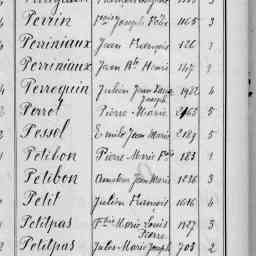 Perrin Joseph 1165 3
Perriniaux Jean François 126 1
Perriniaux Jean Bte 147 1
Perroquin Julien Jean Joseph 1922 4
Perrot Pierre-Marie 2165 5
Pessel Emile Jean Marie 2189 5
Petibon Pierre Marie 183 1
Petibon Jean Marie 1236 3
Petit Julien François 1616 4
Petitpas Marie Louis Pierre 1927 3
Petitpas Jules-Marie Joseph 708 2